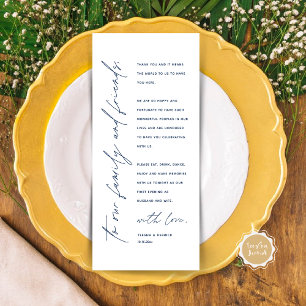 to our family and friends,
THANK YOU AND IT MEANS
THE WORLD TO US TO HAVE
YOU HERE.
WE ARE SO HAPPY AND
FORTUNATE TO HAVE SUCH
WONDERFUL PERSON IN OUR
LIVES AND ARE HONORED
TO HAVE YOU CELEBRATING
WITH US.
PLEASE EAT, DRINK, DANCE,
ENJOY AND MAKE MEMORIES
WITH US TONIGHT AS OUR
FIRST EVENING AS
HUSBAND AND WIFE.
with love,